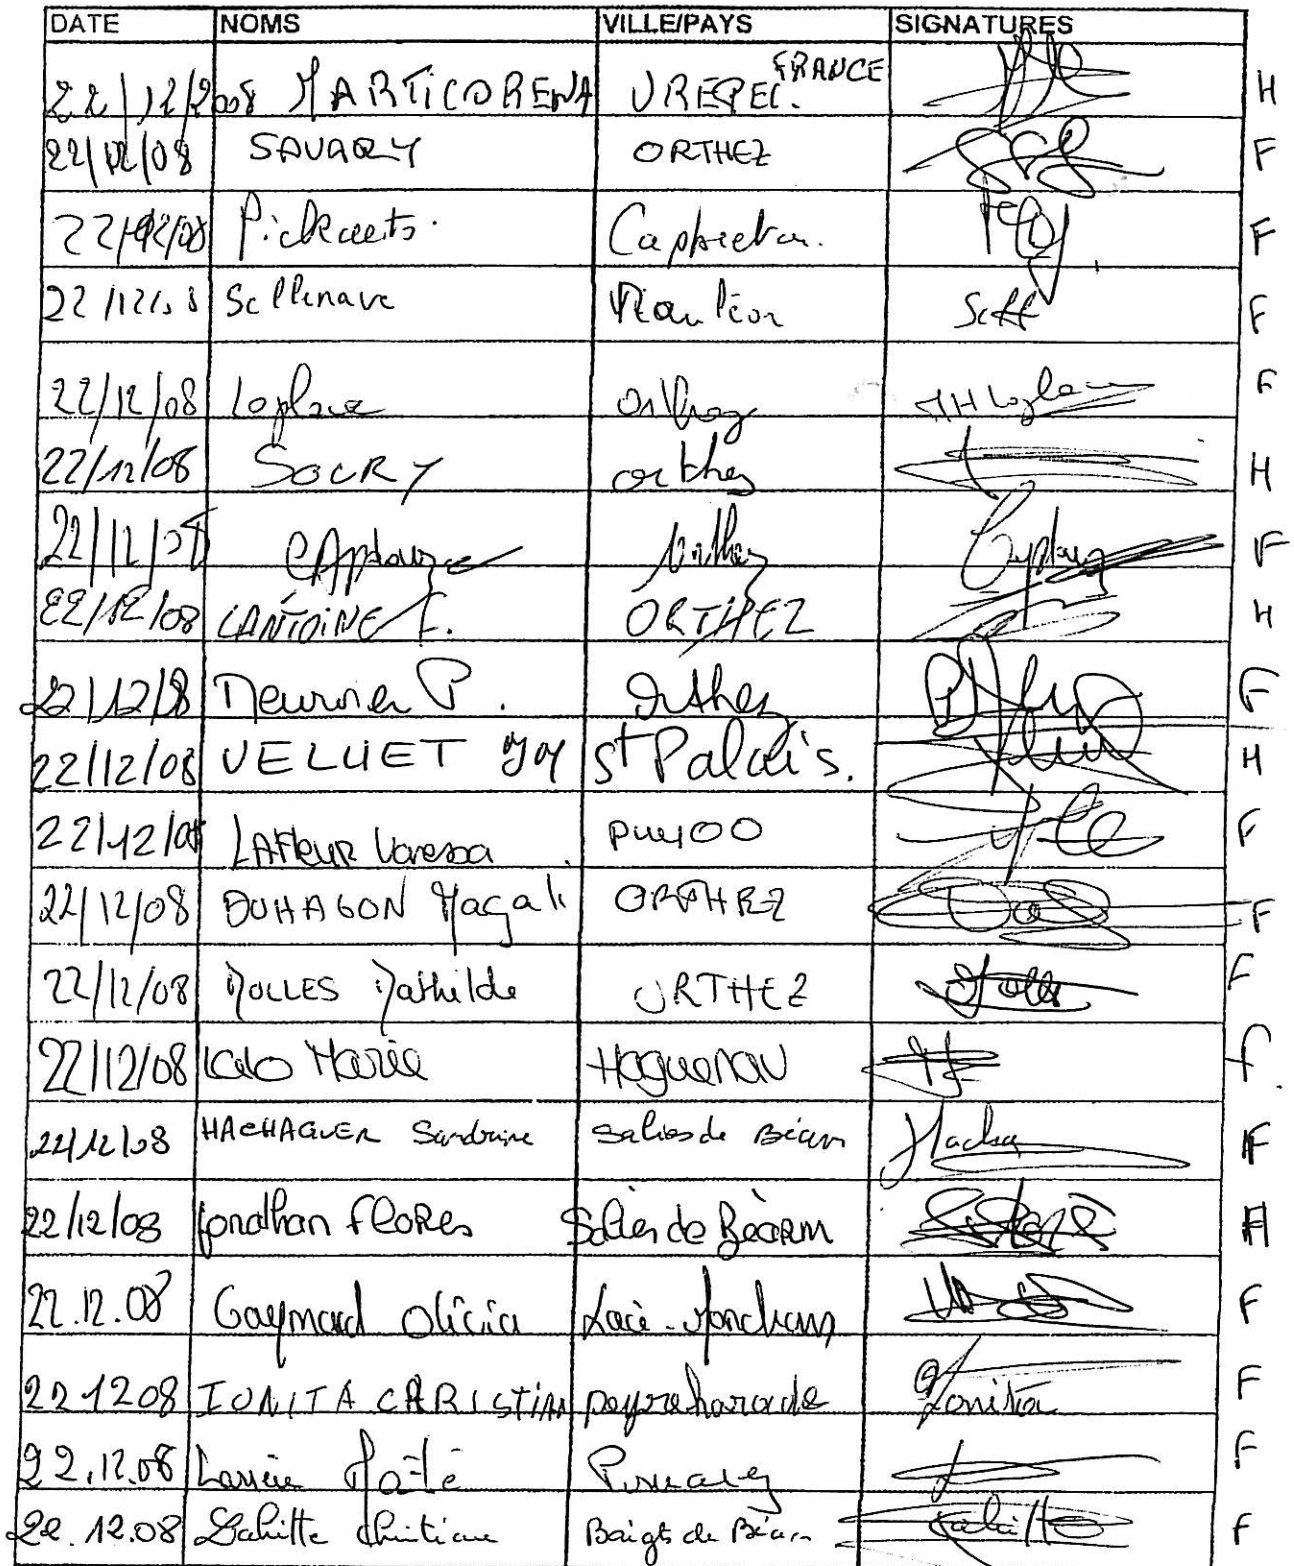 DATE NOMS VILLE/PAYS SIGNATURES
22/12/2008 MARTICORENA UREPEL. FRANCE H
22/12/08 SAVARY ORTHEZ F
22/12/08 Capbreton. F
22/12/08 Sallenave Mauléon F
22/12/08 Laplace Orthez MHLaplace F
22/12/08 SOCRY orthez H
22/12/08 Orthez F
22/12/08 LANTOINE F. ORTHEZ H
22/12/08 P. Orthez F
22/12/08 VELUET JM St Palais. H
22/12/08 LAFleuR Vanessa PuyOO F
22/12/08 DUHAGON Magali ORTHEZ F
22/12/08 MOLLES Mathilde ORTHEZ F
22/12/08 Marie Haguenau F
22/12/08 HACHAGUER Sandrine Salies de Béarn F
22/12/08 Jonathan FloRes Salies de Béarn H
22.12.08 Gaymard Olicia F
22 12 08 IONITA CRRISTIAN peyrehorade Ionita F
22.12.08 F
22.12.08 Lahitte Christiane Baigts de Béarn Lahitte F